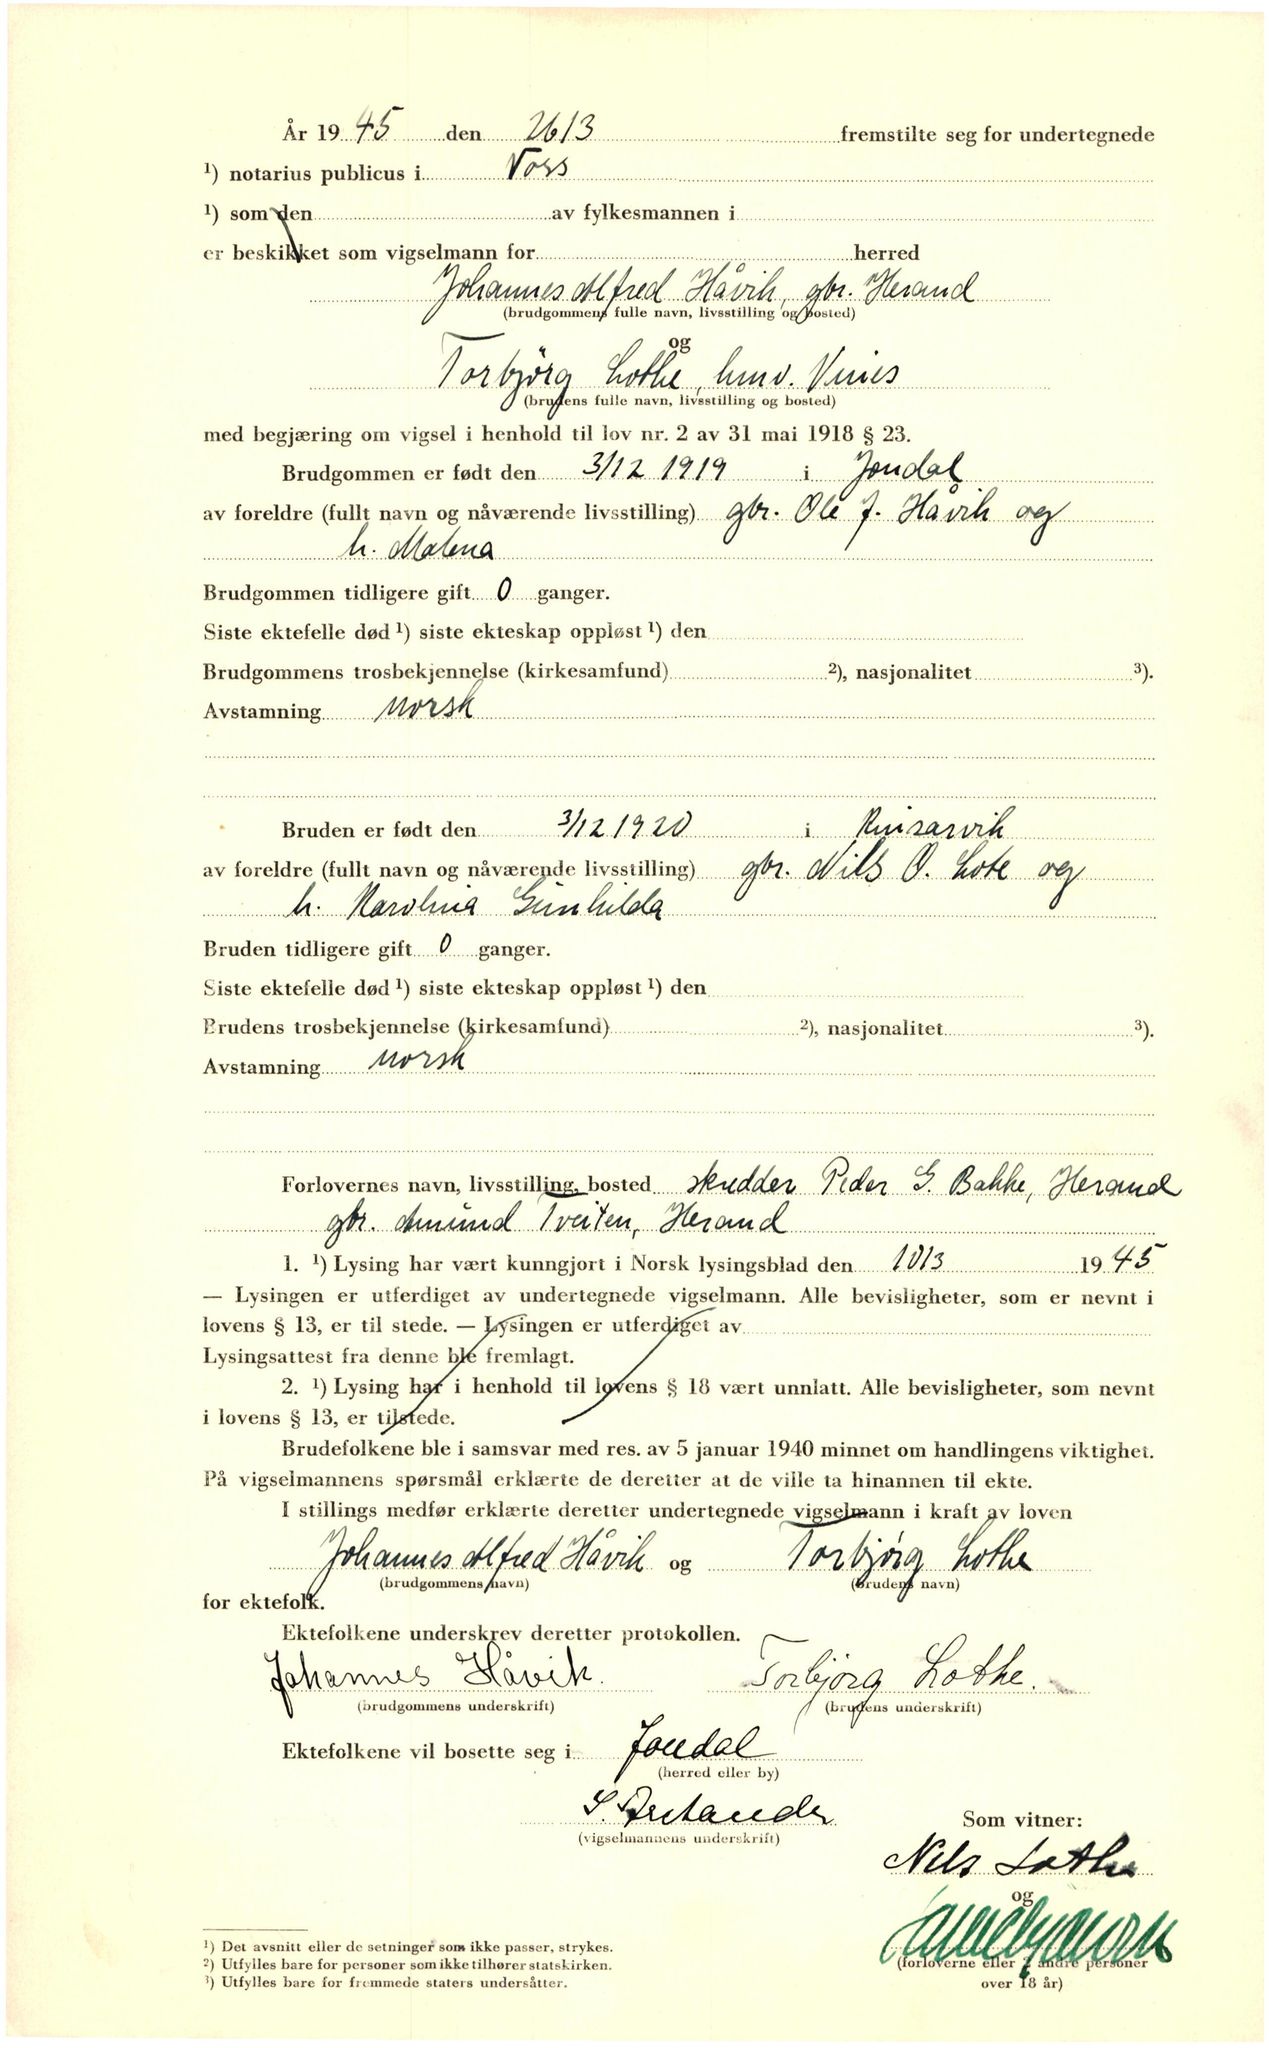 År 19 45 den 26/3 fremstilte seg for undertegnede
¹) notarius publicus i Voss
¹) som den av fylkesmannen i
er beskikket som vigselmann for herred
Johannes Alfred Håvik, gbr. Herand
(brudgommens fulle navn, livsstilling og bosted)
og
Torbjörg Lothe, hmv. Vines
(brudens fulle navn, livsstilling og bosted)
med begjæring om vigsel i henhold til lov nr. 2 av 31 mai 1918 § 23.
Brudgommen er født den 3/12 1919 i Jondal
av foreldre (fullt navn og nåværende livsstilling) gbr. Ole J. Håvik og
h. Malena
Brudgommen tidligere gift 0 ganger.
Siste ektefelle død ¹) siste ekteskap oppløst ¹) den
Brudgommens trosbekjennelse (kirkesamfund) ²), nasjonalitet ³).
Avstamning norsk
Bruden er født den 3/12 1920 i Kinsarvik
av foreldre (fullt navn og nåværende livsstilling) gbr. Nils O. Lote og
h. Karolina Gunhilda
Bruden tidligere gift 0 ganger.
Siste ektefelle død ¹) siste ekteskap oppløst ¹) den
Brudens trosbekjennelse (kirkesamfund) ²), nasjonalitet ³).
Avstamning norsk
Forlovernes navn, livsstilling, bosted skredder Peder G. Bakke, Herand
gbr. Amund Tveiten, Herand
1. ¹) Lysing har vært kunngjort i Norsk lysingsblad den 10/3 19 45
— Lysingen er utferdiget av undertegnede vigselmann. Alle bevisligheter, som er nevnt i
lovens § 13, er til stede. — Lysingen er utferdiget av
Lysingsattest fra denne ble fremlagt.
2. ¹) Lysing har i henhold til lovens § 18 vært unnlatt. Alle bevisligheter, som nevnt
i lovens § 13, er tilstede.
Brudefolkene ble i samsvar med res. av 5 januar 1940 minnet om handlingens viktighet.
På vigselmannens spørsmål erklærte de deretter at de ville ta hinannen til ekte.
I stillings medfør erklærte deretter undertegnede vigselmann i kraft av loven
Johannes Alfred Håvik og Torbjörg Lothe
(brudgommens navn) (brudens navn)
for ektefolk.
Ektefolkene underskrev deretter protokollen.
Johannes Håvik. Torbjørg Lothe.
(brudgommens underskrift) (brudens underskrift)
Ektefolkene vil bosette seg i Jondal
(herred eller by)
S.
(vigselmannens underskrift)
Som vitner:
Nils Lothe
og
(forloverne eller 2 andre personer
over 18 år)
¹) Det avsnitt eller de setninger som ikke passer, strykes.
²) Utfylles bare for personer som ikke tilhører statskirken.
³) Utfylles bare for fremmede staters undersåtter.